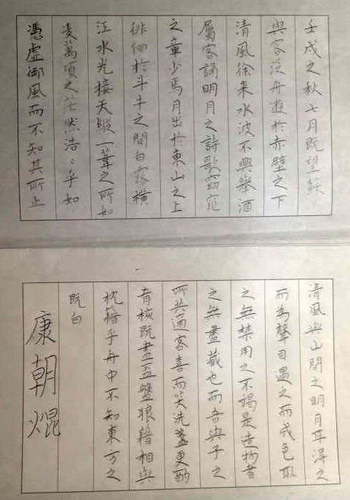 壬戌之秋七月既望蘇
與客泛舟遊於赤壁之下
清風徐來水波不興舉酒
屬客誦明月之詩歌窈窕
之章少焉月出於東山之上
徘徊於斗牛之間白露橫
江水光接天縱一葦之所如
凌萬頃之茫然浩〻乎如
憑虛御風而不知其所止
清風與山間之明月耳得之
而為聲目遇之而成色取
之無禁用之不竭是造物者
之無盡藏也而吾與子之
所共適客喜而笑洗盞更酌
肴核既盡盃盤狼藉相與
枕藉乎舟中不知東方之
既白
康朝焜